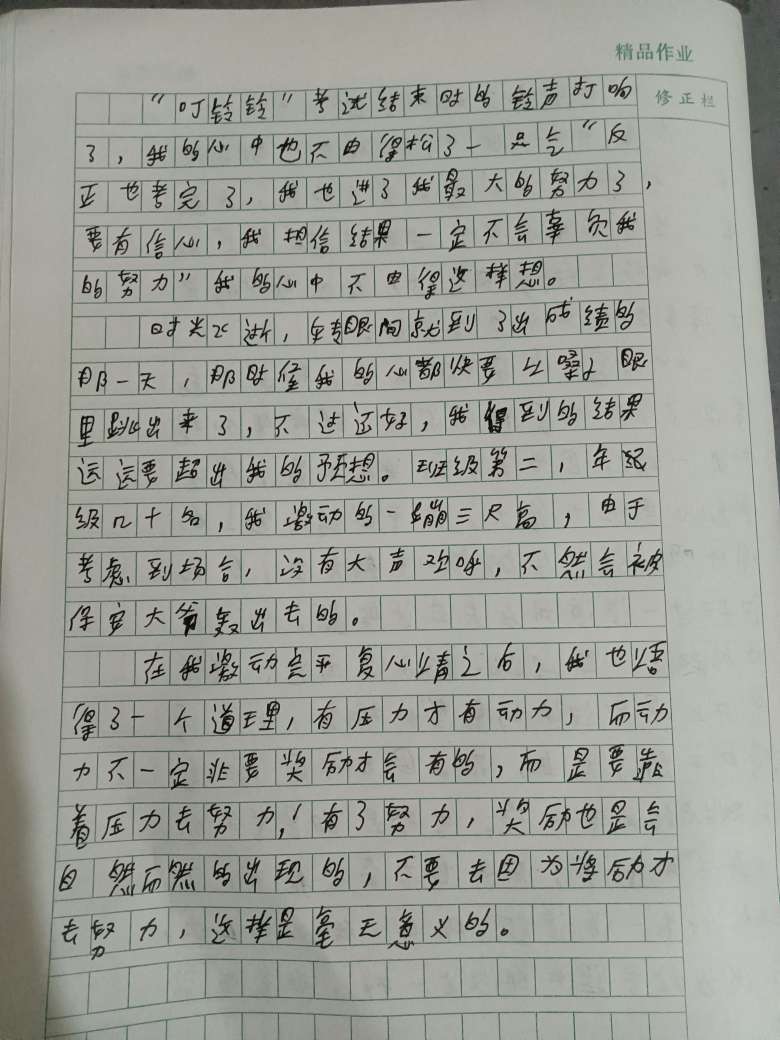 精品作业
修正栏
"叮铃铃"考试结束时的铃声打响
了，我的心中也不由得松了一口气"反
正也考完了，我也进了我最大的努力了，
要有信心，我相信结果一定不会辜负我
的努力"我的心中不由得这样想。
时光飞逝，转眼间就到了出成绩的
那一天，那时候我的心都快要从嗓子眼
里跳出来了，不过还好，我得到的结果
远远要超出我的预想。班级第二，年级
级几十名，我激动的一蹦三尺高，由于
考虑到场合，没有大声欢呼，不然会被
保安大爷轰出去的。
在我激动完平复心情之后，我也悟
得了一个道理，有压力才有动力，而动
力不一定非要奖励才会有的，而是要靠
着压力去努力，有了努力，奖励也是会
自然而然的出现的，不要去因为奖励才
去努力，这样是毫无意义的。